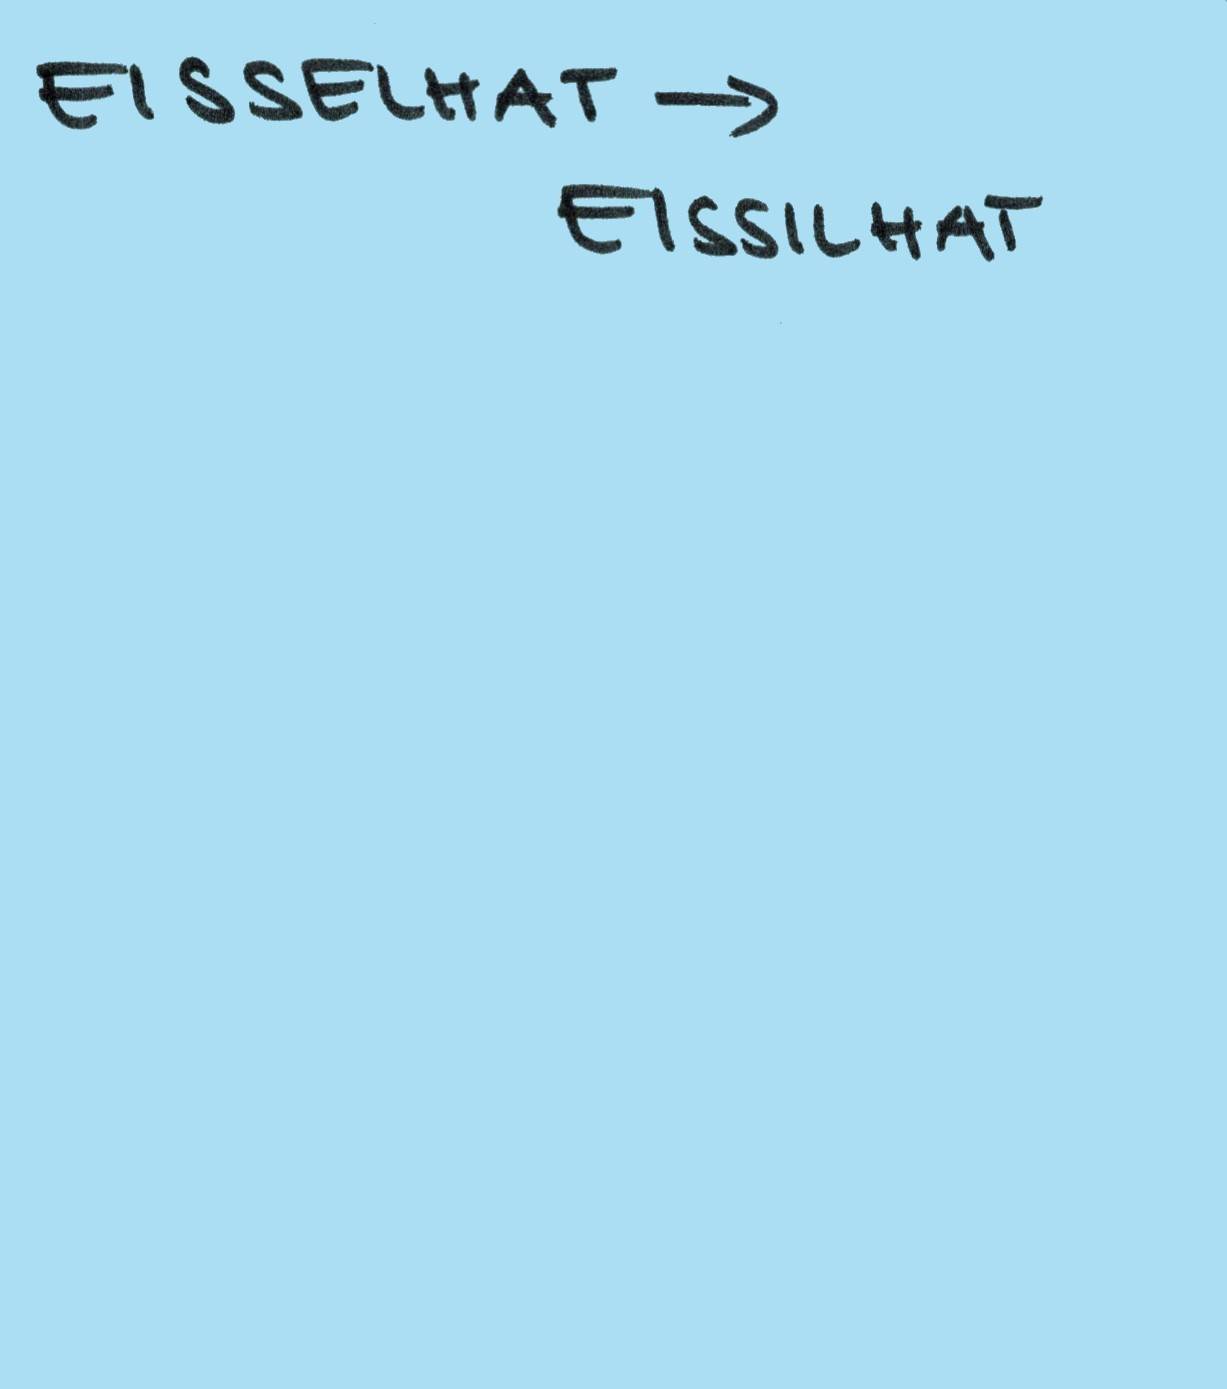 EISSELHAT →
EISSILHAT